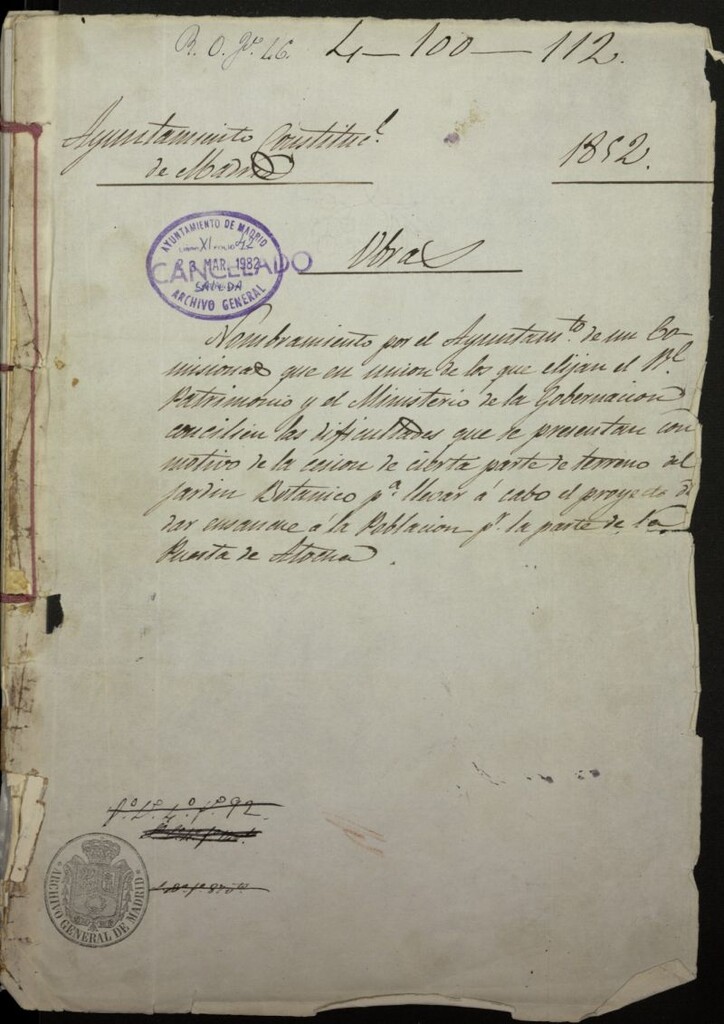 R. O. 46. 4-100-112.
Ayuntamiento Constituc.l
de Madrid
1852.
AYUNTAMIENTO DE MADRID
XI 42
23 MAR. 1982
CANCELADO
SALIDA
ARCHIVO GENERAL
Obras
Nombramiento por el Ayuntam.to de un Co-
misionado que en union de los que elijan el R.l
Patrimonio y el Ministerio de la Gobernacion
concilien las dificultades que se presentan con
motivo de la cesion de cierta parte de terreno del
Jardin Botanico p.a llevar á cabo el proyecto de
dar ensanche á la Poblacion p.r la parte de la
Puerta de Atocha.
ARCHIVO GENERAL DE MADRID